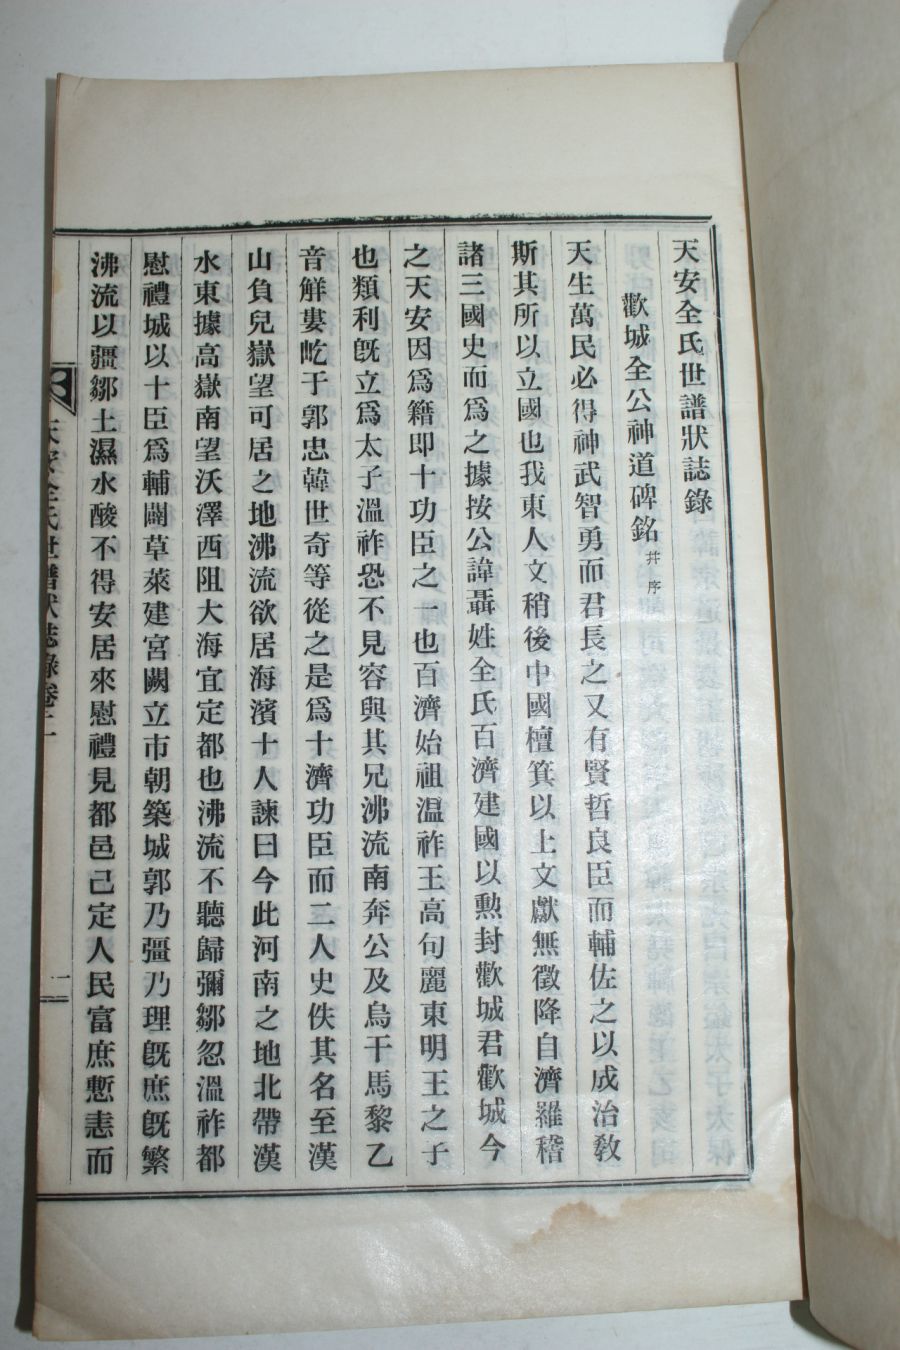 天安全氏世譜狀誌錄
歡城全公神道碑銘 幷序
天生萬民必得神武智勇而君長之又有賢哲良臣而輔佐之以成治敎
斯其所以立國也我東人文稍後中國檀箕以上文獻無徵降自濟羅稽
諸三國史而爲之據按公諱聶姓全氏百濟建國以勲封歡城君歡城今
之天安因爲籍即十功臣之一也百濟始祖溫祚王高句麗東明王之子
也類利旣立爲太子溫祚恐不見容與其兄沸流南奔公及烏干馬黎乙
音觧婁屹于郭忠韓世奇等從之是爲十濟功臣而二人史佚其名至漢
山負兒嶽望可居之地沸流欲居海濱十人諫曰今此河南之地北帶漢
水東據高嶽南望沃澤西阻大海宜定都也沸流不聽歸彌鄒忽溫祚都
慰禮城以十臣爲輔闢草萊建宮闕立市朝築城郭乃彊乃理旣庶旣繁
沸流以彌鄒土濕水酸不得安居來慰禮見都邑己定人民富庶慙恚而
天安全氏世譜狀誌錄卷二
一